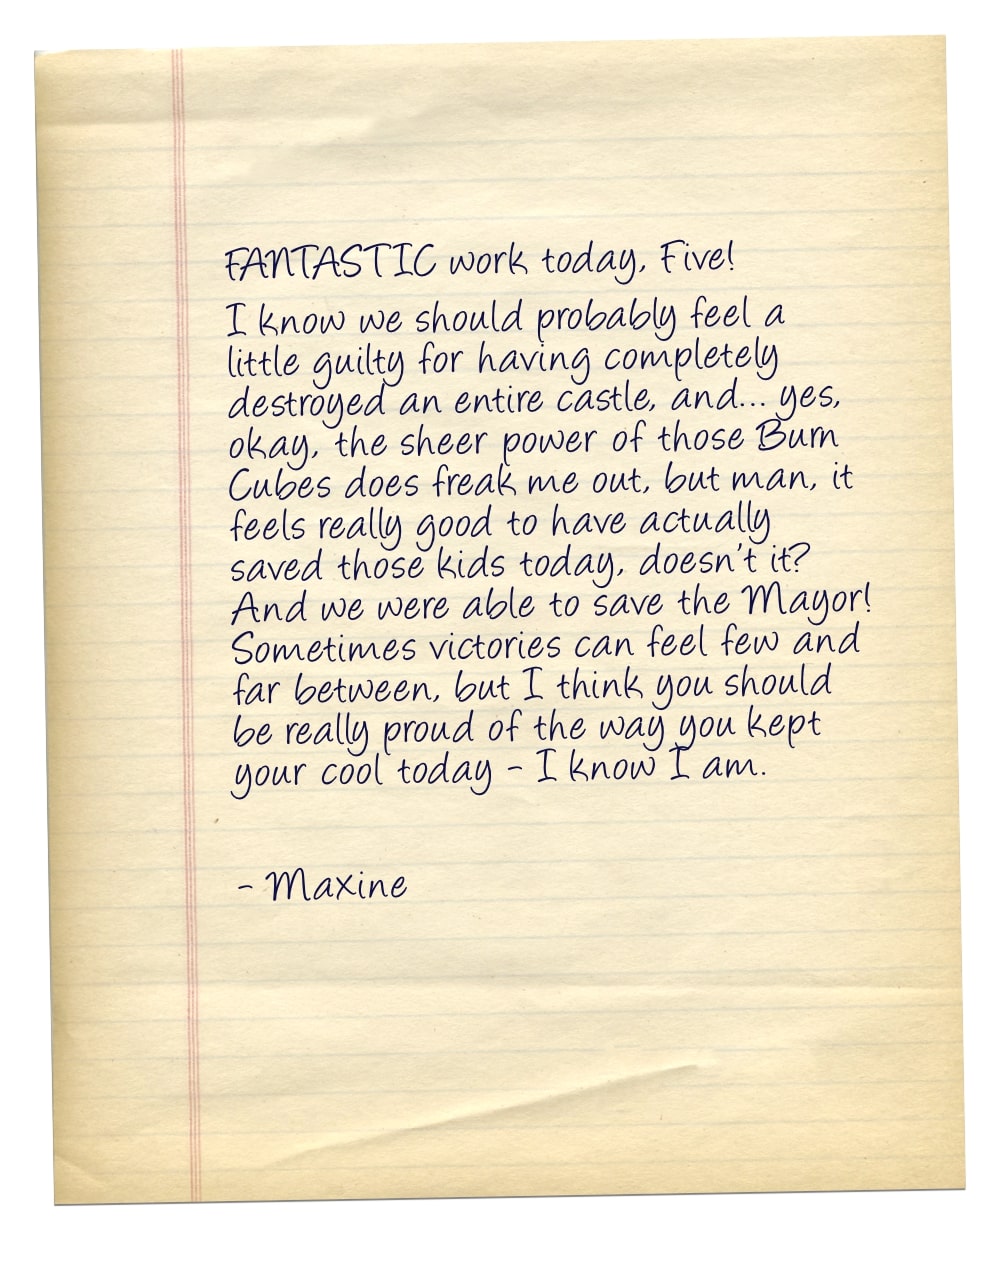 FANTASTIC work today, Five!
I know we should probably feel a
little guilty for having completely
destroyed an entire castle, and... yes,
okay, the sheer power of those Burn
Cubes does freak me out, but man, it
feels really good to have actually
saved those kids today, doesn't it?
And we were able to save the Mayor!
Sometimes victories can feel few and
far between, but I think you should
be really proud of the way you kept
your cool today - I know I am.
- Maxine